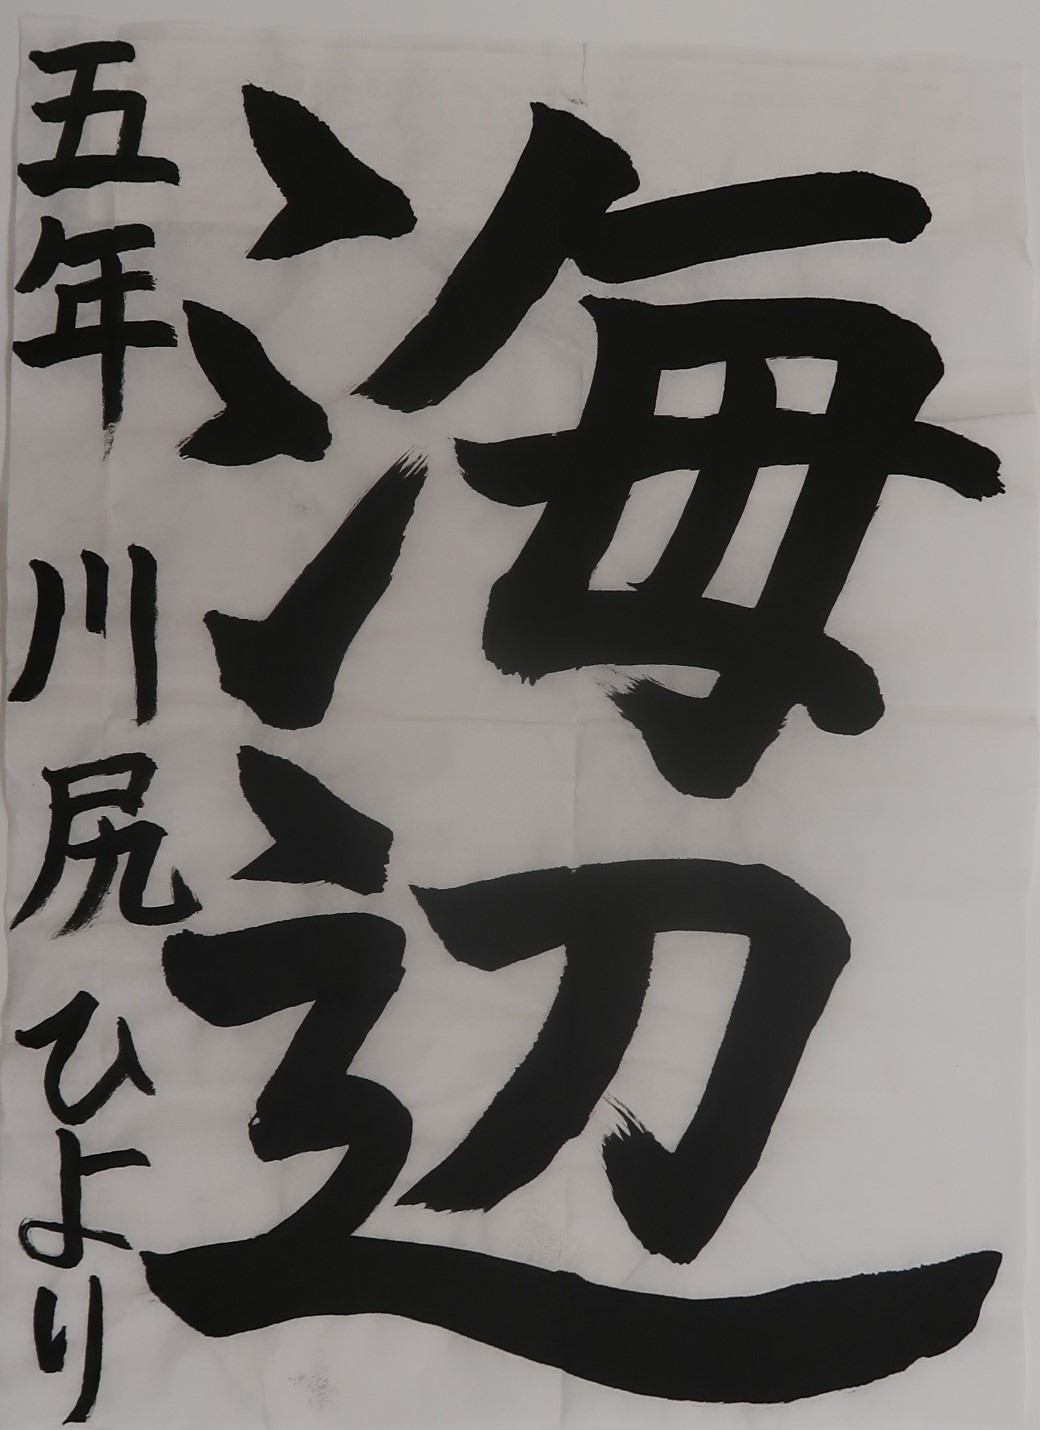 海辺
五年 川尻 ひより